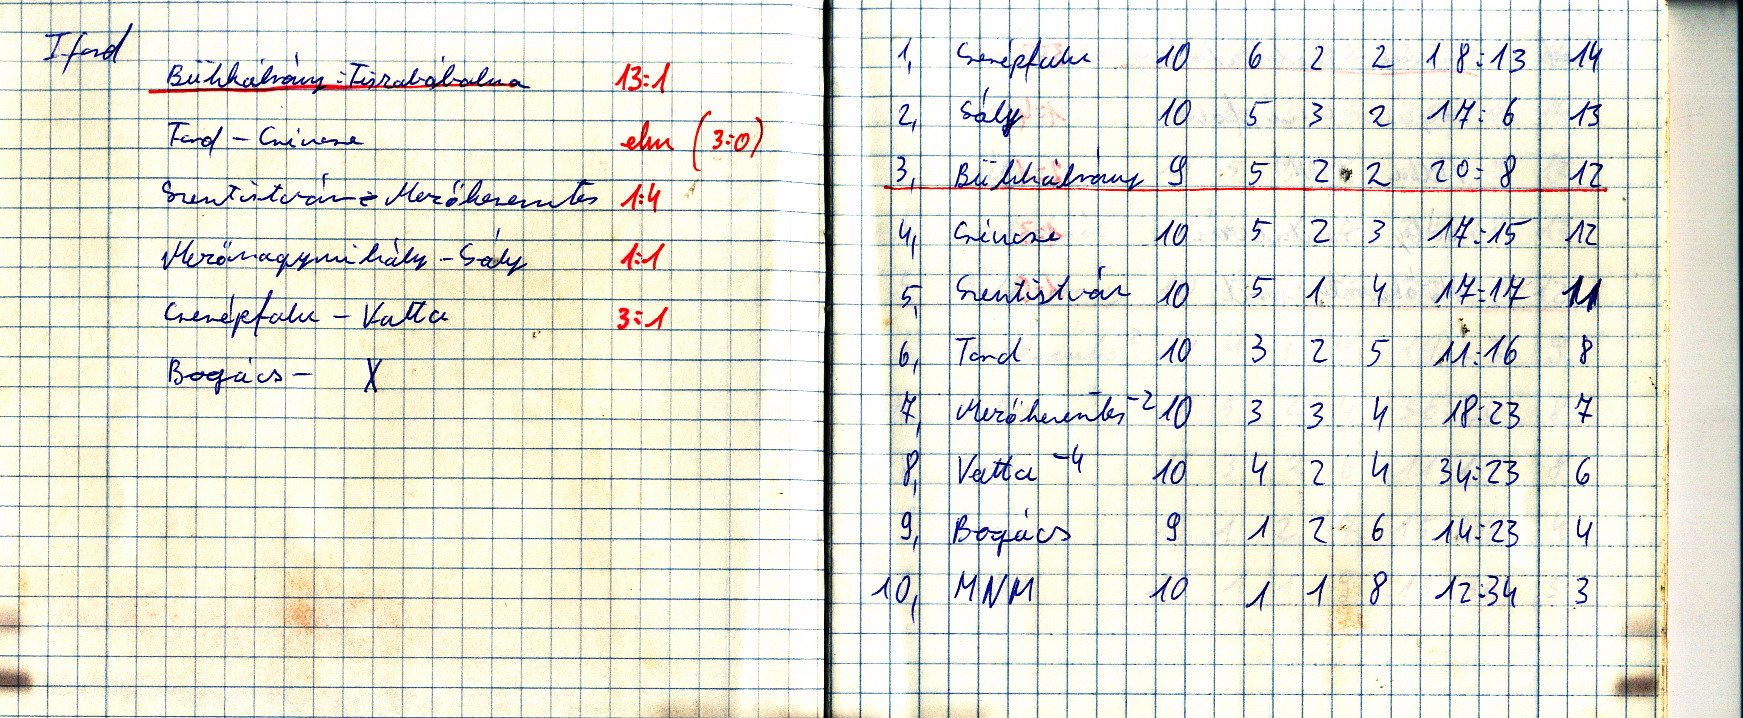 I. ford
Bükkábrány - Tiszabábolna 13:1
Tard - Csincse elm (3:0)
Szentistván - Mezőkeresztes 1:4
Mezőnagymihály - Sály 1:1
Cserépfalu - Vatta 3:1
Bogács - X
1, Cserépfalu 10 6 2 2 18:13 14
2, Sály 10 5 3 2 17:6 13
3, Bükkábrány 9 5 2 2 20:8 12
4, Csincse 10 5 2 3 17:15 12
5, Szentistván 10 5 1 4 17:17 11
6, Tard 10 3 2 5 11:16 8
7, Mezőkeresztes -2 10 3 3 4 18:23 7
8, Vatta -4 10 4 2 4 34:23 6
9, Bogács 9 1 2 6 14:23 4
10, MNM 10 1 1 8 12:34 3